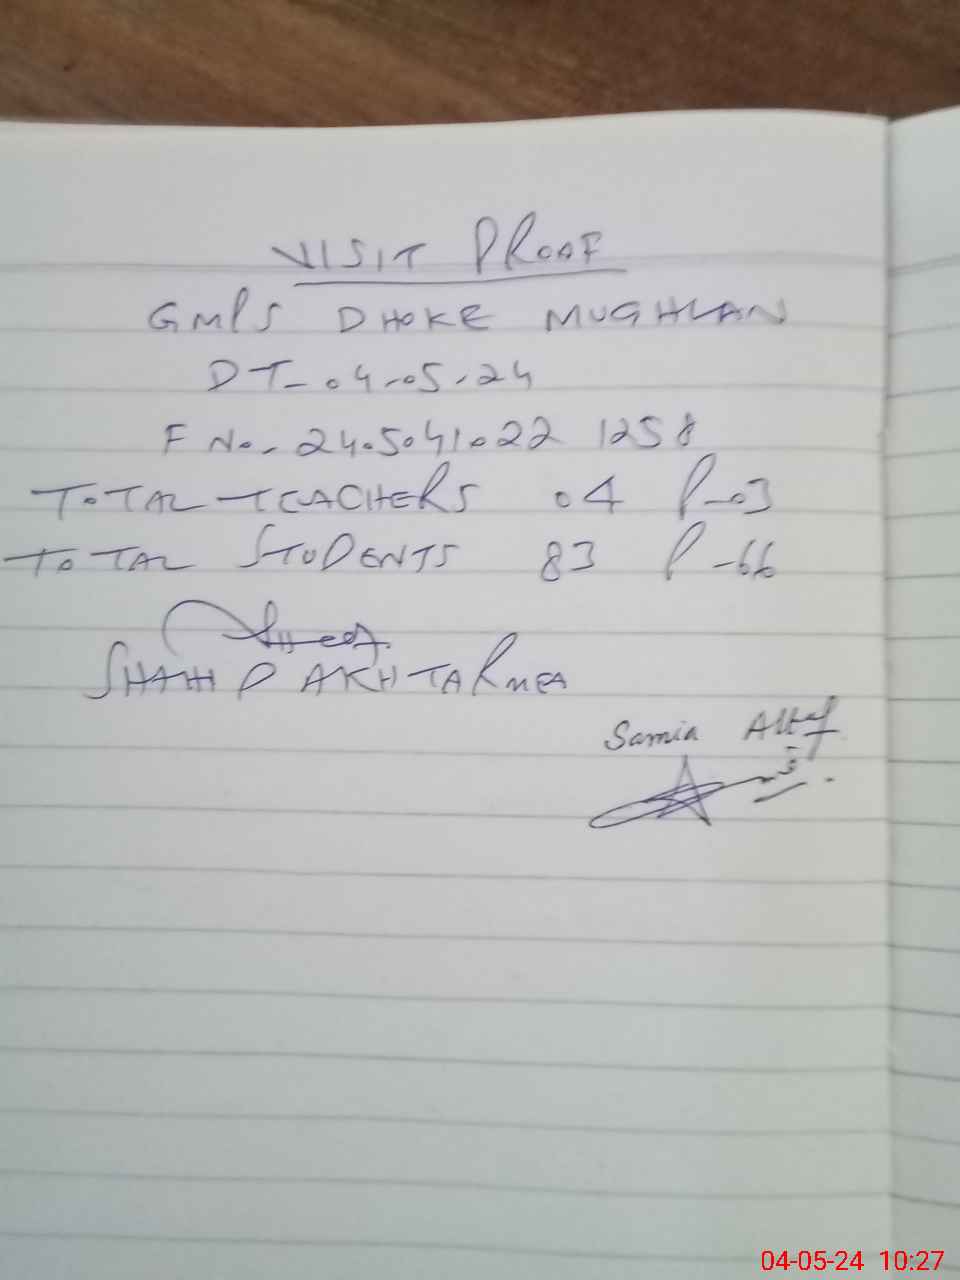 VISIT PROAF
GMPS DHOKE MUGHLAN
DT-04-05-24
F No- 24050410221258
TOTAL TEACHERS 04 P-03
TOTAL STUDENTS 83 P-66
SHAHID AKHTAR MEA
Samia Altaf
04-05-24 10:27